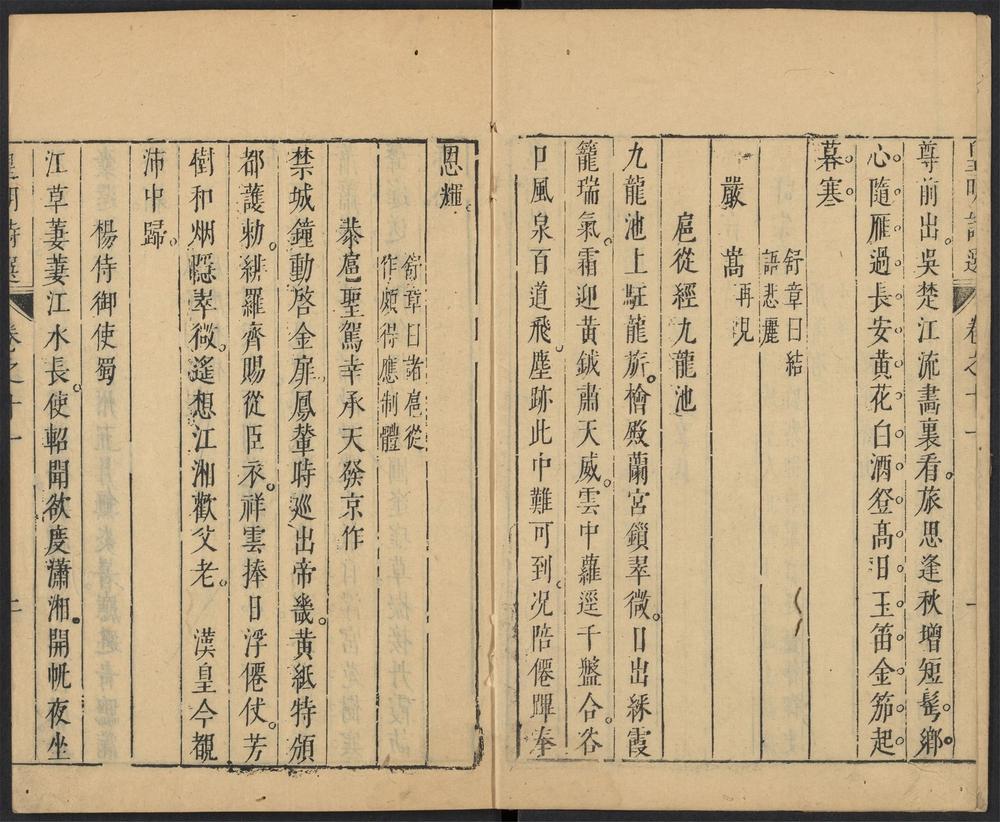 皇明詩選 卷之十一 一
尊前出。吳楚江流畵裏看。旅思逢秋增短髩。鄉
心隨雁過長安。黃花白酒登高日。玉笛金笳起
暮寒。
舒章曰結
語悲麗
嚴嵩再見
扈從經九龍池
九龍池上駐龍旂。檜殿蘭宮鎖翠微。日出綵霞
籠瑞氣。霜迎黃鉞肅天威。雲中蘿逕千盤合。谷
口風泉百道飛。塵跡此中難可到。况陪僊蹕奉
恩輝。
舒章曰諸扈從
作頗得應制體
恭扈聖駕幸承天發京作
禁城鐘動啓金扉。鳳輦時廵出帝畿。黃紙特頒
都護勅。緋羅齊賜從臣衣。祥雲捧日浮僊仗。芳
樹和烟隱翠微。遙想江湘歡父老。漢皇今覩
沛中歸。
楊侍御使蜀
江草萋萋江水長。使軺開欲度瀟湘。開帆夜坐
皇明詩選 卷之十一 二